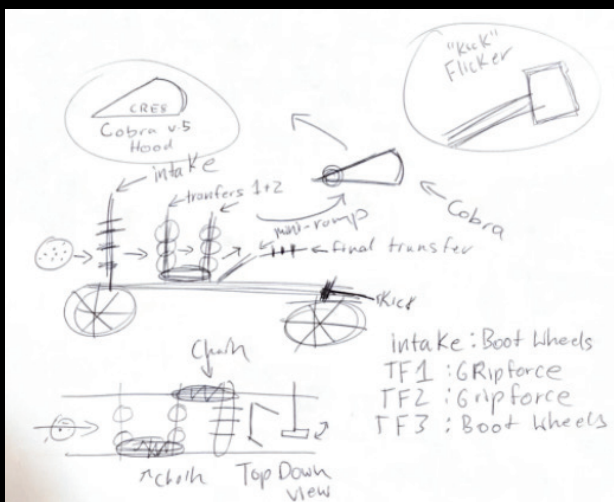 "Kick"
Flicker
CRE8
Cobra v.5
Hood
intake
transfers 1+2
mini-ramp
Cobra
final transfer
Kick
intake: Boot Wheels
TF1: GRipforce
TF2: Gripforce
TF3: Boot Wheels
Chain
Chain
Top Down
View